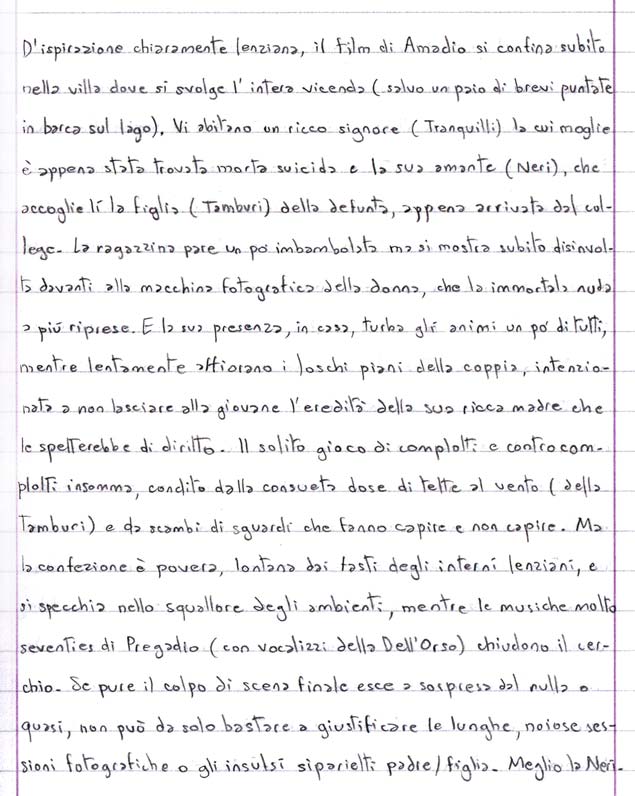 D'ispirazione chiaramente lenziana, il film di Amadio si confina subito
nella villa dove si svolge l'intera vicenda (salvo un paio di brevi puntate
in barca sul lago). Vi abitano un ricco signore (Tranquilli) la cui moglie
è appena stata trovata morta suicida e la sua amante (Neri), che
accoglie lì la figlia (Tamburi) della defunta, appena arrivata dal col-
lege. La ragazzina pare un po' imbambolata ma si mostra subito disinvol-
ta davanti alla macchina fotografica della donna, che la immortala nuda
a più riprese. E la sua presenza, in casa, turba gli animi un po' di tutti,
mentre lentamente affiorano i loschi piani della coppia, intenzio-
nata a non lasciare alla giovane l'eredità della sua ricca madre che
le spetterebbe di diritto. Il solito gioco di complotti e controcom-
plotti insomma, condito dalla consueta dose di tette al vento (della
Tamburi) e da scambi di sguardi che fanno capire e non capire. Ma
la confezione è povera, lontana dai fasti degli interni lenziani, e
si specchia nello squallore degli ambienti, mentre le musiche molto
seventies di Pregadio (con vocalizzi della Dell'Orso) chiudono il cer-
chio. Se pure il colpo di scena finale esce a sorpresa dal nulla o
quasi, non può da solo bastare a giustificare le lunghe, noiose ses-
sioni fotografiche o gli insulsi siparietti padre/figlia. Meglio la Neri.